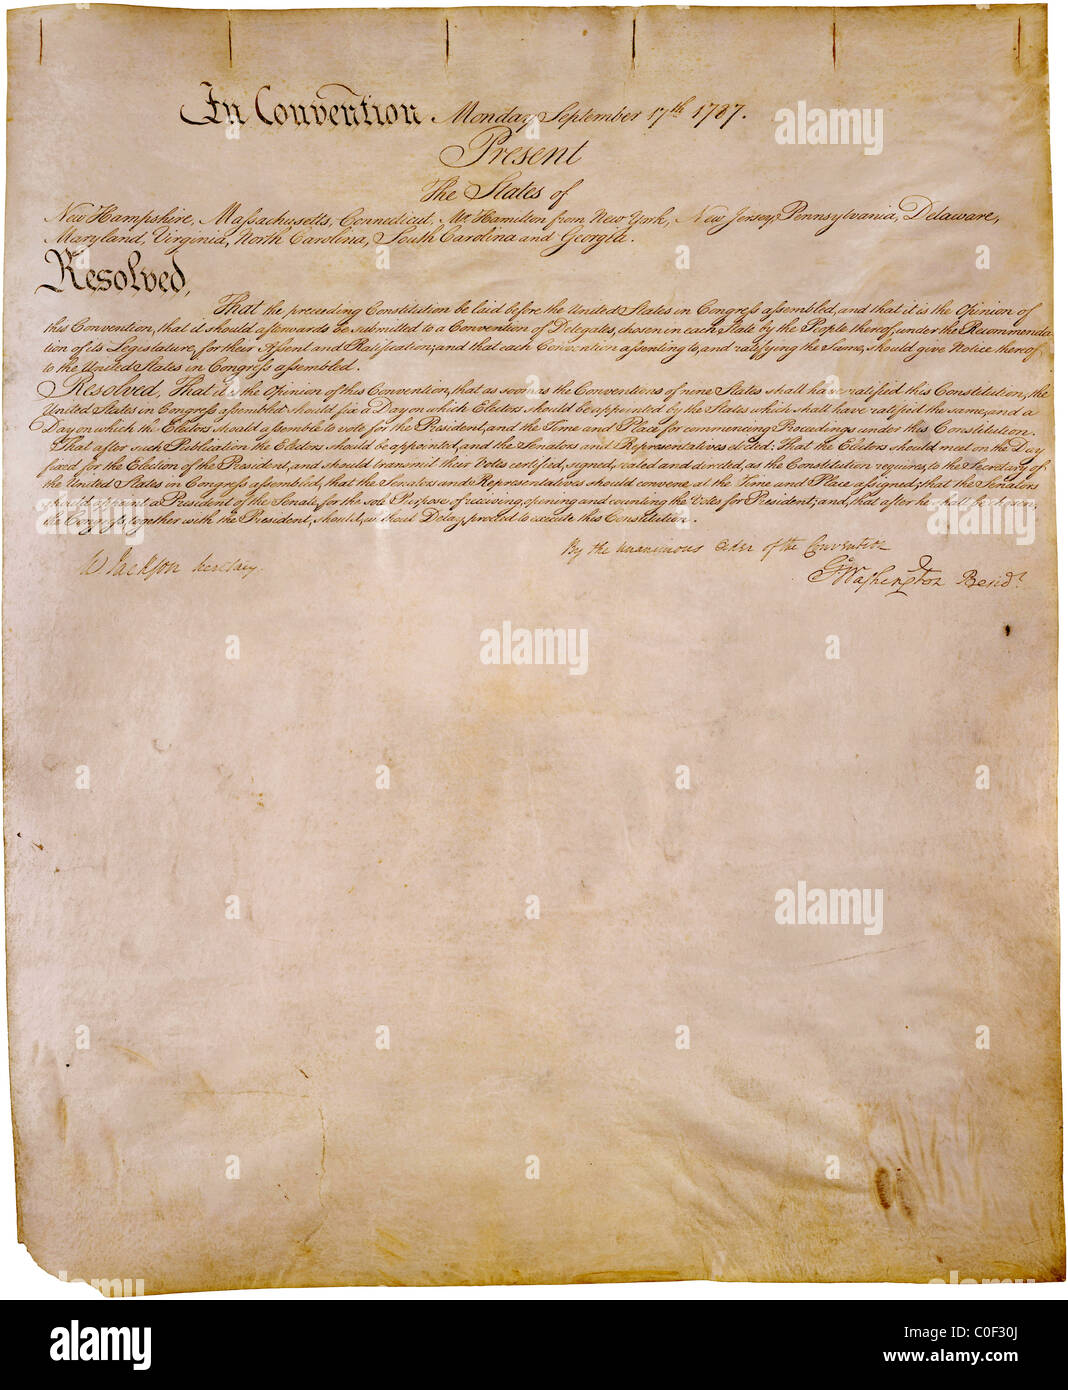 In Convention Monday September 17th 1787.
Present
The States of
New Hampshire, Massachusetts, Connecticut, Mr. Hamilton from New York, New Jersey, Pennsylvania, Delaware,
Maryland, Virginia, North Carolina, South Carolina and Georgia.
Resolved,
That the preceeding Constitution be laid before the United States in Congress assembled, and that it is the Opinion of
this Convention, that it should afterwards be submitted to a Convention of Delegates, chosen in each State by the People thereof, under the Recommenda
tion of its Legislature, for their Assent and Ratification; and that each Convention assenting to, and ratifying the Same, should give Notice thereof
to the United States in Congress assembled.
Resolved, That it is the Opinion of this Convention, that as soon as the Conventions of nine States shall have ratified this Constitution, the
United States in Congress assembled should fix a Day on which Electors should be appointed by the States which shall have ratified the same, and a
Day on which the Electors should assemble to vote for the President, and the Time and Place for commencing Proceedings under this Constitution.
That after such Publication the Electors should be appointed, and the Senators and Representatives elected: That the Electors should meet on the Day
fixed for the Election of the President, and should transmit their Votes certified, signed, sealed and directed, as the Constitution requires, to the Secretary of
the United States in Congress assembled, that the Senators and Representatives should convene at the Time and Place assigned; that the Senators
should appoint a President of the Senate, for the sole Purpose of receiving, opening and counting the Votes for President; and, that after he shall be chosen,
the Congress, together with the President, should, without Delay, proceed to execute this Constitution.
By the unanimous Order of the Convention
W Jackson Secretary.
Go: Washington Presidt.
alamy
Image ID: C0F30J
www.alamy.com